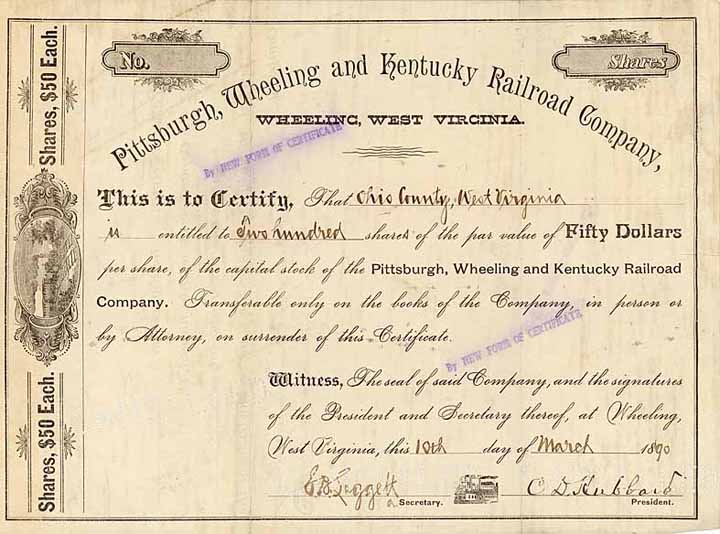 No.
Shares
Shares, $50 Each.
Pittsburgh, Wheeling and Kentucky Railroad Company,
WHEELING, WEST VIRGINIA.
By NEW FORM OF CERTIFICATE
This is to Certify, That Ohio County, West Virginia
is entitled to Two hundred shares of the par value of Fifty Dollars
per share, of the capital stock of the Pittsburgh, Wheeling and Kentucky Railroad
Company. Transferable only on the books of the Company, in person or
by Attorney, on surrender of this Certificate.
By NEW FORM OF CERTIFICATE
Witness, The seal of said Company, and the signatures
of the President and Secretary thereof, at Wheeling,
West Virginia, this 10th day of March 1890
Shares, $50 Each.
C D Hubbard
Secretary.
President.